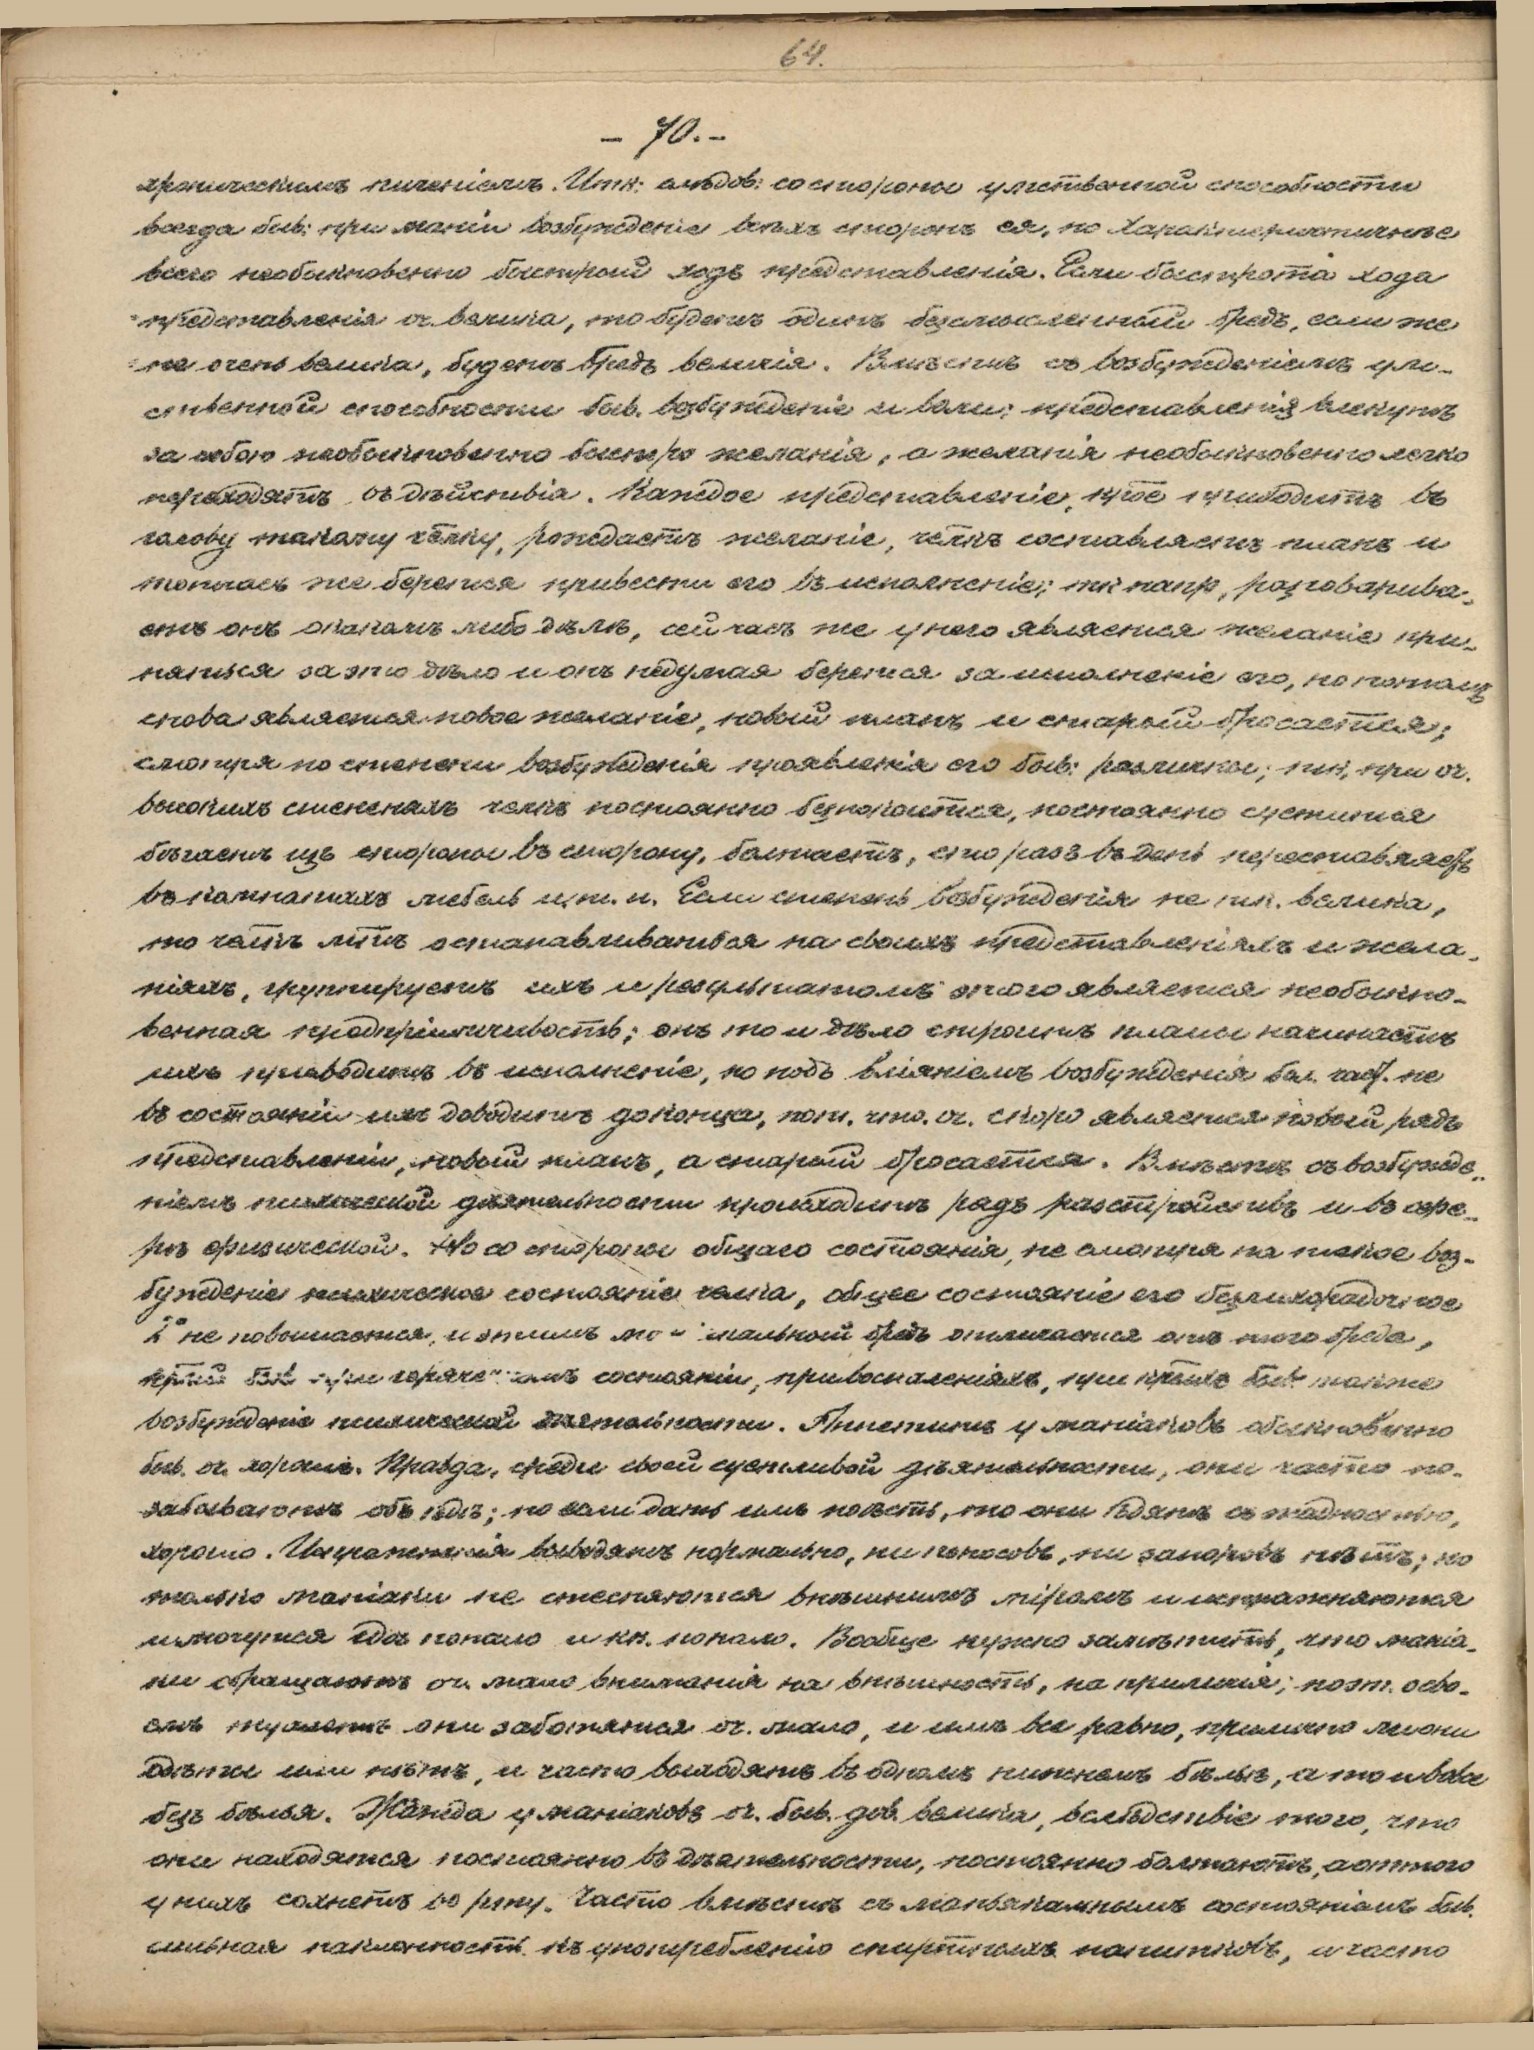 64.
– 70. –
хроническимъ теченіемъ. Итк: слѣдов: со стороны умственной способности
всегда быв: при маніи возбужденіе всѣхъ сторонъ ея, но характеристичнѣе
всего необыкновенно быстрый ходъ представленія. Если быстрота хода
представленія оч. велика, то будетъ одинъ безсмысленный бредъ, если же
не очень велика, будетъ бредъ величія. Вмѣстѣ съ возбужденіемъ ум-
ственной способности быв. возбужденіе и воли; представленія влекутъ
за собою необыкновенно быстро желанія, а желанія необыкновенно легко
переходятъ въ дѣйствія. Каждое представленіе, крое приводитъ въ
голову такому челку, рождаетъ желаніе, челкъ составляетъ планъ и
тотчасъ же берется привести его въ исполненіе; тк напр, разговарива-
етъ онъ о какомъ либо дѣлѣ, сейчасъ же у него является желаніе при-
няться за это дѣло и онъ недумая берется за исполненіе его, но потомъ
снова является новое желаніе, новый планъ и старый бросается;
смотря по степени возбужденія проявленія его быв: различны; тк, при оч.
высокихъ степеняхъ челкъ постоянно безпокоится, постоянно суетится
бѣгаетъ изъ стороны въ сторону, болтаетъ, сто разъ въ день переставляетъ
въ комнатахъ мебель и т. п. Если степень возбужденія не тк. велика,
то челкъ м. останавливаться на своихъ представленіяхъ и жела-
ніяхъ, группируетъ ихъ и результатомъ этого является необыкно-
венная предпріимчивость; онъ то и дѣло строитъ планы начинаетъ
ихъ приводитъ въ исполненіе, но подъ вліяніемъ возбужденія бол. част. не
въ состояніи ихъ доводитъ доконца, пот. что. оч. скоро является новый рядъ
представленій, новый планъ, а старый бросается. Вмѣстѣ съ возбужде-
ніемъ психической дѣятельности происходитъ рядъ разстройствъ и въ сфе-
рѣ физической. Но со стороны общаго состоянія, не смотря на такое воз-
бужденіе психическое состояніе челка, общее состояніе его безлихорадочное
t° не повышается, и этимъ бредъ отличается отъ того бреда,
крый быв при состояніи, при воспаленіяхъ, при крыхъ быв. также
возбужденіе психической дѣятельности. Аппетитъ у маніаковъ обыкновенно
быв. оч. хорошъ. Правда, среди своей суетливой дѣятельности, они часто по-
забываютъ объ ѣдѣ; но если дать имъ поѣсть, то они ѣдятъ съ жадностью,
хорошо. Испражненія выводятъ нормально, ни поносовъ, ни запоровъ нѣтъ; но
только маніаки не стесняются внѣшнимъ міромъ и испражняются
и мочутся гдѣ попало и кк. попало. Вообще нужно замѣтить, что маніа-
ки обращаютъ оч. мало вниманія на внѣшность, на приличія; поэт. о сво-
емъ туалетѣ они заботятся оч. мало, и имъ все равно, прилично ли они
одѣты или нѣтъ, и часто выходятъ въ одномъ нижнемъ бѣльѣ, а то и вовсе
безъ бѣлья. Жажда у маніаковъ оч. быв. дов. велика, вслѣдствіе того, что
они находятся постоянно въ дѣятельности, постоянно болтаютъ, а оттого
у нихъ сохнетъ во рту. Часто вмѣстѣ съ маньякальнымъ состояніемъ быв.
сильная наклонность къ употребленію спиртныхъ напитковъ, и часто